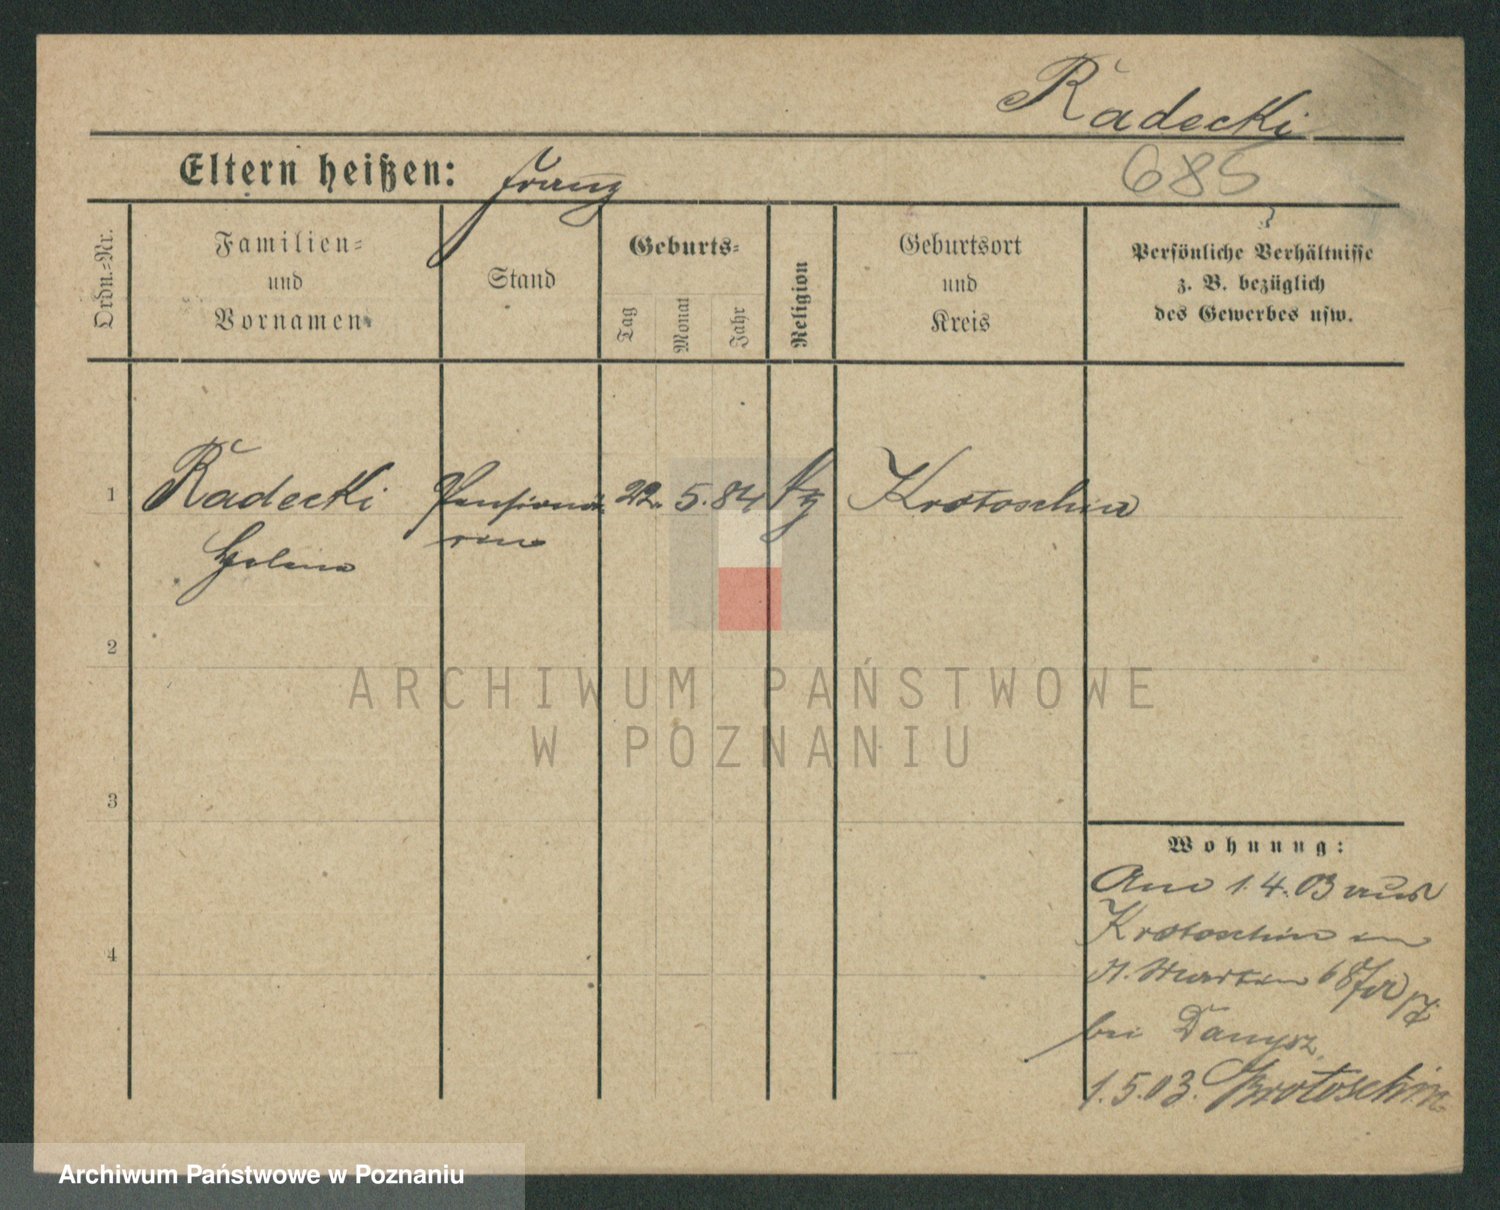 Radecki
685
Eltern heißen: Franz
Ordn.=Nr.
Familien=
und
Vornamen
Stand
Geburts=
Tag
Monat
Jahr
Religion
Geburtsort
und
Kreis
Persönliche Verhältnisse
z. B. bezüglich
des Gewerbes usw.
1 Radecki Pensionä- 22. 5. 84 Krotoschin
rin
2
3
4
Wohnung:
Am 1.4.03 aus
Krotoschin in
St. Martin 68
bei Danysz
1.5.03. Krotoschin
ARCHIWUM PAŃSTWOWE
W POZNANIU
Archiwum Państwowe w Poznaniu